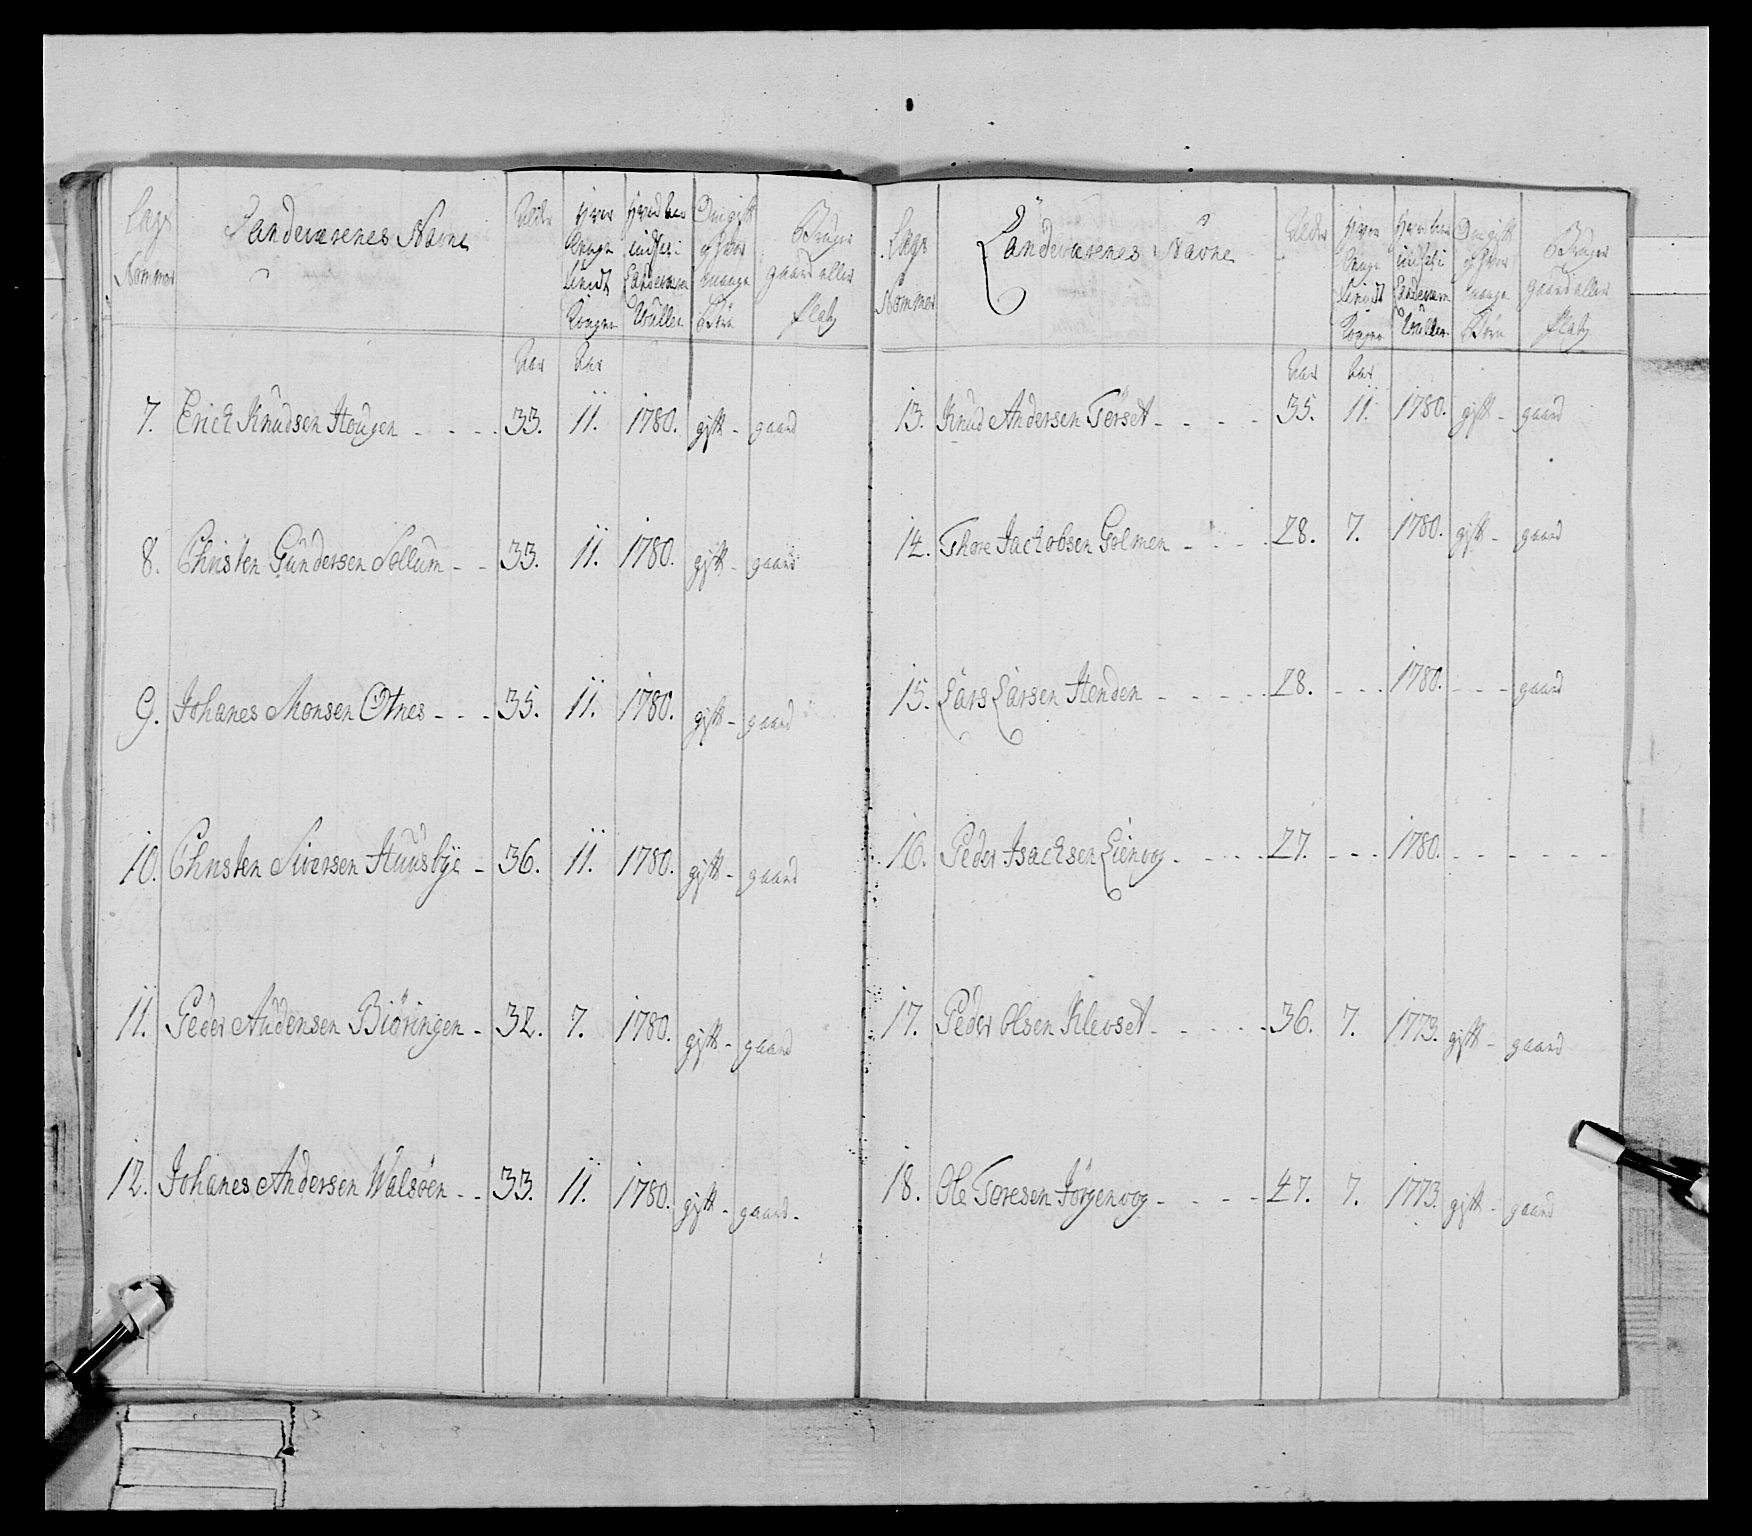 Lags Nommer | Landeværenes Navne | Alder | Hvor længe tient Kongen | Hvad Aar indsat i Landeværn Rullen | Om gift og hvor mange Børn | Bruger gaard eller Platz
Aar | Aar
7. Erick Knudsen Hougen - - - 33. 11. 1780. gift - gaard
8. Christen Gundersen Sollum - - 33. 11. 1780. gift - gaard
9. Johanes Monsen Otnes - - - 35. 11. 1780. gift - gaard
10. Christen Siversen Huusbye - 36. 11. 1780. gift - gaard
11. Peder Audensen Biöringen - 32. 7. 1780. gift - gaard
12. Johanes Andersen Walsöen - - 33. 11. 1780. gift - gaard -
Lags Nommer | Landeværenes Navne | Alder | Hvor længe tient Kongen | Hvad Aar indsat i Landeværn Rullen | Om gift og hvor mange Børn | Bruger gaard eller Platz
Aar | Aar
13. Knud Andersen Törset - - - - 35. 11. 1780. gift - gaard
14. Thore Jackobsen Golmen - - - 28. 7. 1780. gift - gaard
15. Lars Larsen Henden - - - - - 28. - - - 1780. - - - gaard
16. Peder Isachsen Lienvog - - - - 27. - - - 1780. - - - - - -
17. Peder Olsen Klevset - - - - - 36. 7. 1773. gift - gaard
18. Ole Toresen Jörgenvog - - - - 47. 7. 1773. gift - gaard